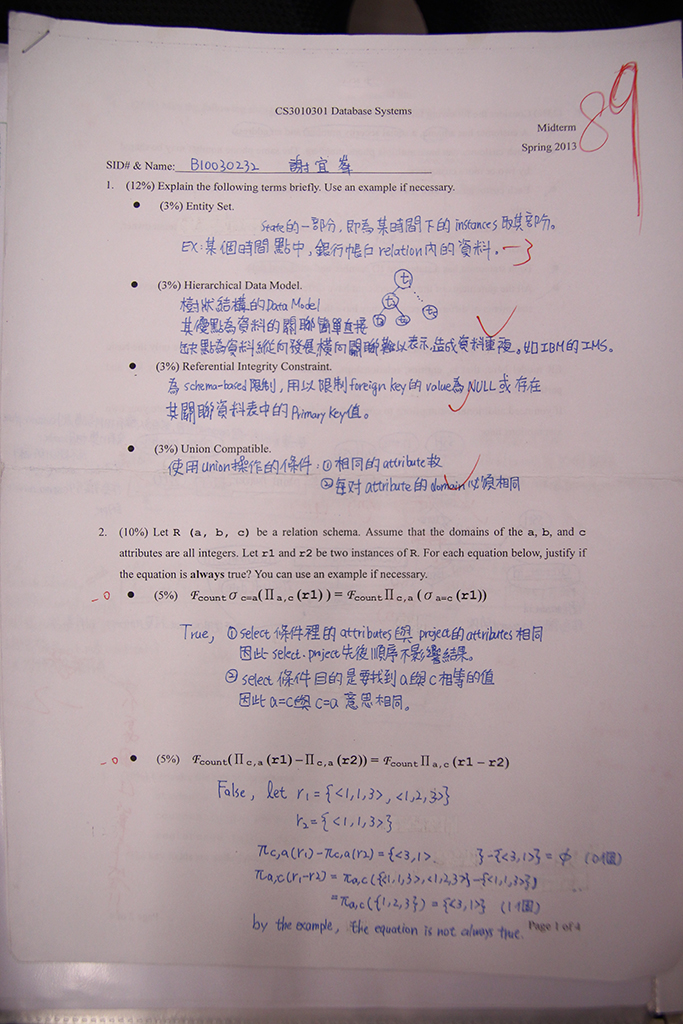 89
CS3010301 Database Systems
Midterm
Spring 2013
SID# & Name: B10030232 謝宜峯
1. (12%) Explain the following terms briefly. Use an example if necessary.
● (3%) Entity Set.
state的一部分，即為某時間下的instances取其部分。
EX:某個時間點中，銀行帳戶relation內的資料。 -3
● (3%) Hierarchical Data Model.
樹狀結構的Data Model
其優點為資料的關聯簡單直接
缺點為資料縱向發展橫向關聯難以表示，造成資料重複。如IBM的IMS。
● (3%) Referential Integrity Constraint.
為schema-based限制，用以限制foreign key的value為NULL或存在
其關聯資料表中的Primary key值。
● (3%) Union Compatible.
使用union操作的條件：①相同的attribute數
②每对attribute的domain必須相同
2. (10%) Let R (a, b, c) be a relation schema. Assume that the domains of the a, b, and c
attributes are all integers. Let r1 and r2 be two instances of R. For each equation below, justify if
the equation is always true? You can use an example if necessary.
-0 ● (5%) ℱcount σ c=a(Π a,c (r1)) = ℱcount Π c,a (σ a=c (r1))
True, ①select 條件裡的attributes與project的attributes相同
因此select、project先後順序不影響結果。
②select 條件目的是要找到a與c相等的值
因此a=c與c=a 意思相同。
-0 ● (5%) ℱcount(Π c,a (r1) −Π c,a (r2)) = ℱcount Π a,c (r1 − r2)
False, let r1 = {<1,1,3>, <1,2,3>}
r2 = {<1,1,3>}
πc,a(r1)-πc,a(r2) = {<3,1> }-{<3,1>} = ϕ (0個)
πa,c(r1-r2) = πa,c({<1,1,3>,<1,2,3>}-{<1,1,3>})
= πa,c({1,2,3}) = {<3,1>} (1個)
by the example, the equation is not always true.
Page 1 of 4